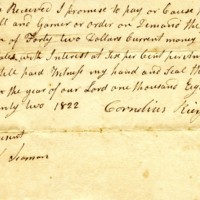 Received I promise to pay or Cause
ll and Garner or order on Demand the
m of Forty two Dollars Current money
with Interest at Six per Cent per
till paid Witness my hand and Seal the
in the year of our Lord one thousand Eig
nty two 1822 Cornelius